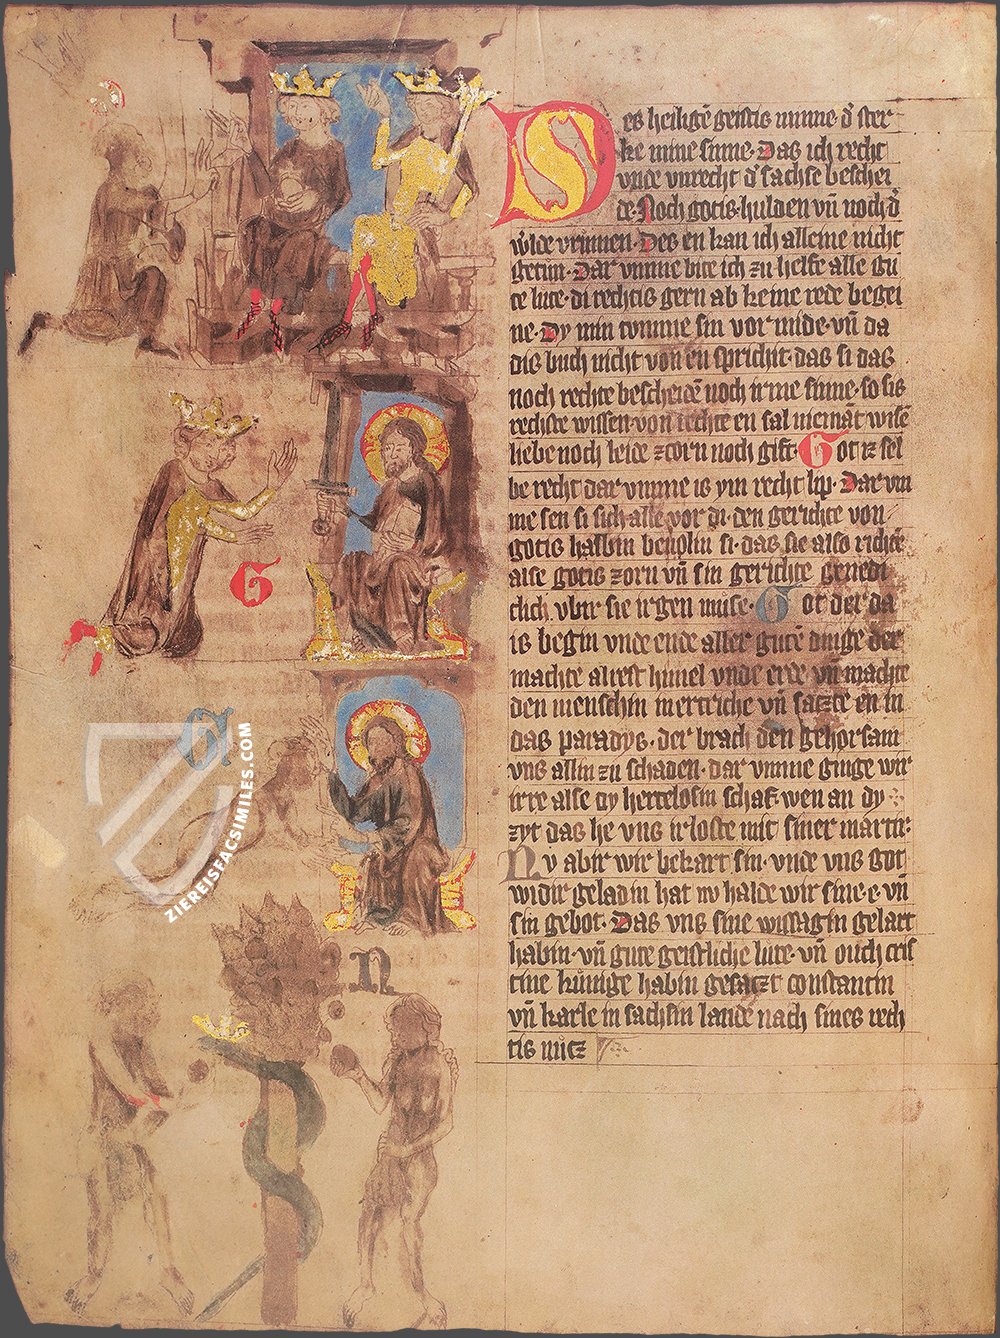 Des heiligē geistis minne d' ster
ke mine sinne. Das ich recht
vnde vnrecht d' sachse beschei
de. Noch gotis hulden vn̄ noch d'
w'lde vrumen. Des en kan ich alleine nicht
getun. Dar vmme bite ich zu helfe alle gu
te lute. di rechtis gern ab keine rede begei
ne. Dy min tumme sin vor mide. vn̄ da
dis buch nicht von en spricht. das si das
noch rechte bescheidē noch irme sinne. so sis
rechte wissen. von rechte en sal niemāt wisē
liebe noch leide zcorn noch gift. Got iz sel
be recht dar vmme is ym recht lip. Dar vm
me sen si sich alle vor di den gerichte von
gotis halbin beuolin si. das sie also richtē
alse gotis zorn vn̄ sin gerichte genedi
clich vbir sie irgen muse. Got der da
is begin vnde ende aller gutē dinge der
machte alrest himel vnde erde vn̄ machte
den menschin in ertriche vn̄ satzte en in
das paradys. der brach den gehorsam
vns allin zu schaden. dar vmme ginge wir
irre alse dy hertelosin schaf. wen an dy
zyt das he vns irloste mit siner martir.
Nv abir wir bekart sin. vnde vns got
widir geladin hat nv halde wir sine. e. vn̄
sin gebot. Das vns sine wissagin gelart
habin. vn̄ gute geistliche lute. vn̄ ouch cris
tine kůnige habin gesatzt constantin
vn̄ karle in sachsin lande nach sines rech
tis
G
G
N
ZIEREISFACSIMILES.COM